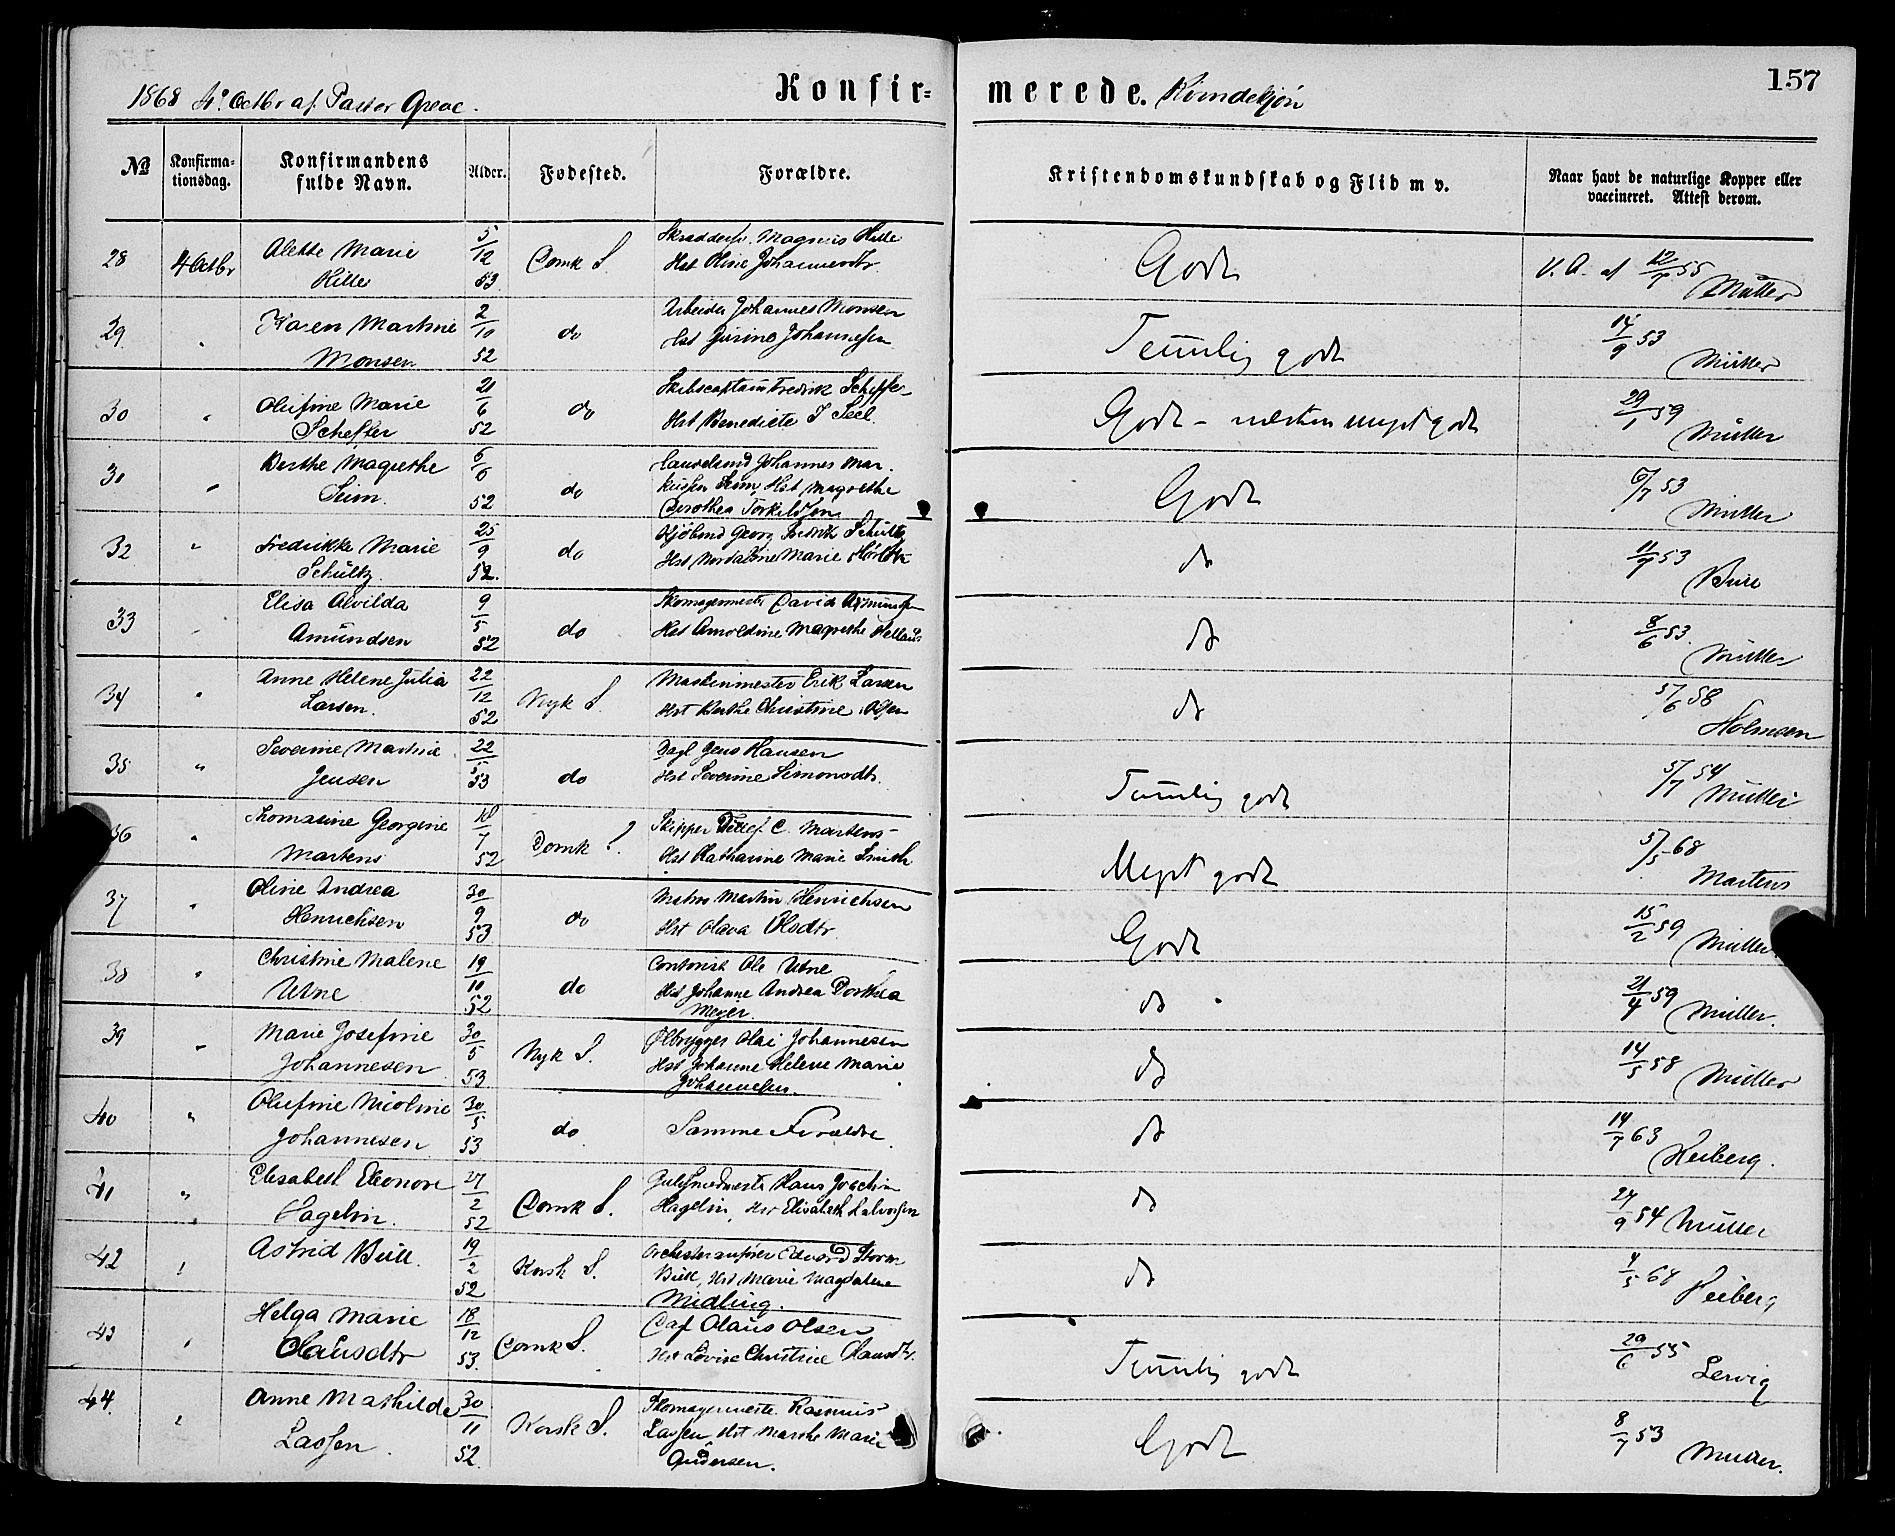 157
Konfir=
merede. Kvindekjön
1868 4de Octbr af Pastor Greve.
№
Konfirma-
tionsdag.
Konfirmandens
fulde Navn.
Alder.
Fødested.
Forældre.
Kristendomskundskab og Flid m v.
Naar havt de naturlige Kopper eller
vaccineret. Attest derom.
28 4 Octbr Alette Marie
Hille
5/12 53
Domk S.
Magnus Hille
Hst Oline Johannesdtr
Godt
V. A. af 12/9 55 Müller
29 " Karen Martine
Monsen
2/10 52
do
Arbeider Johannes Monsen
Hst Johannesen
Temlig godt
14/9 53 Müller
30 " Olufine Marie
Schefter
21/6 52
do
Hst Benedicte
Godt - næsten meget godt
29/1 59 Müller
30 " Berthe Magrethe
Seim.
6/6 52
do
Johannes Mar-
kussen Seim, Hst Magrethe
Dorothea Torkildsen
Godt
6/7 53 Müller
32 " Fredrikke Marie
Schültz.
25/9 52.
do
Georg Fredrik Schültz
Hst Marie
do
11/9 53
33 Elisa Alvilda
Amündsen
9/5 52
do
Skomagermester David Amündsen
Hst Arnoldine Magrethe
do
8/6 53. Müller
34 " Anne Helene Julia
Larsen.
22/12 52
Nyk S.
Maskinmester Erik Larsen
Hst Berthe Christine Olsen
do
5/6 58
Holmsen
35 " Severine Martine
Jensen
22/5 53
do
Dagl Jens Hansen
Hst Severine Simonsdtr.
Temlig godt
5/7 54 Müller
36 " Thomasine Georgine
Martens
18/7 52
Domk S.
Skipper Detlef C. Martens
Hst Katharine Marie Smith
Meget godt
5/5 68
Martens
37 " Oline Andrea
Henrichsen
30/9 53
do
Matros Martin Henrichsen
Hst Olava Olsdtr.
Godt
15/2 59 Müller
38 " Christine Malene
Utne
19/10 52
do
Contorist Ole Utne
Hst Johanne Andrea Dorthea
Meyer.
do
21/4 59 Müller.
39 " Marie Josefine
Johannesen
30/5 53
Nyk S.
Ølbrygger Olai Johannesen
Hst Johanne Helene Marie
Johannesen.
do
14/5 58 Müller
40 " Olufine Nicoline
Johannesen
30/5 53
do
Samme Forældre.
do
14/7 63
Heiberg.
41 " Elisabeth Eleonore
Hagelin.
27/2 52
Domk S.
Guldsmedmester Hans Joachim
Hagelin, Hst Elisabeth Halvorsen
do
27/9 54 Müller
42 " Astrid Büll.
19/2 52
Korsk S.
Orchesteranfører Edvard Storm
Büll, Hst Marie Magdalene
Midling.
do
4/5 68 Heiberg
43 " Helga Marie
Olausdtr
18/12 53.
Domk S.
Daf Olaus Olsen
Hst Lovise Christine Hansdtr.
Temlig godt
20/6 55
Lervig
44. " Anne Mathilde
Lassen.
30/11 52.
Korsk S.
Skomagermester Rasmus
Lassen, Hst Marthe Marie
Andersen.
Godt
8/7 53
Müller.